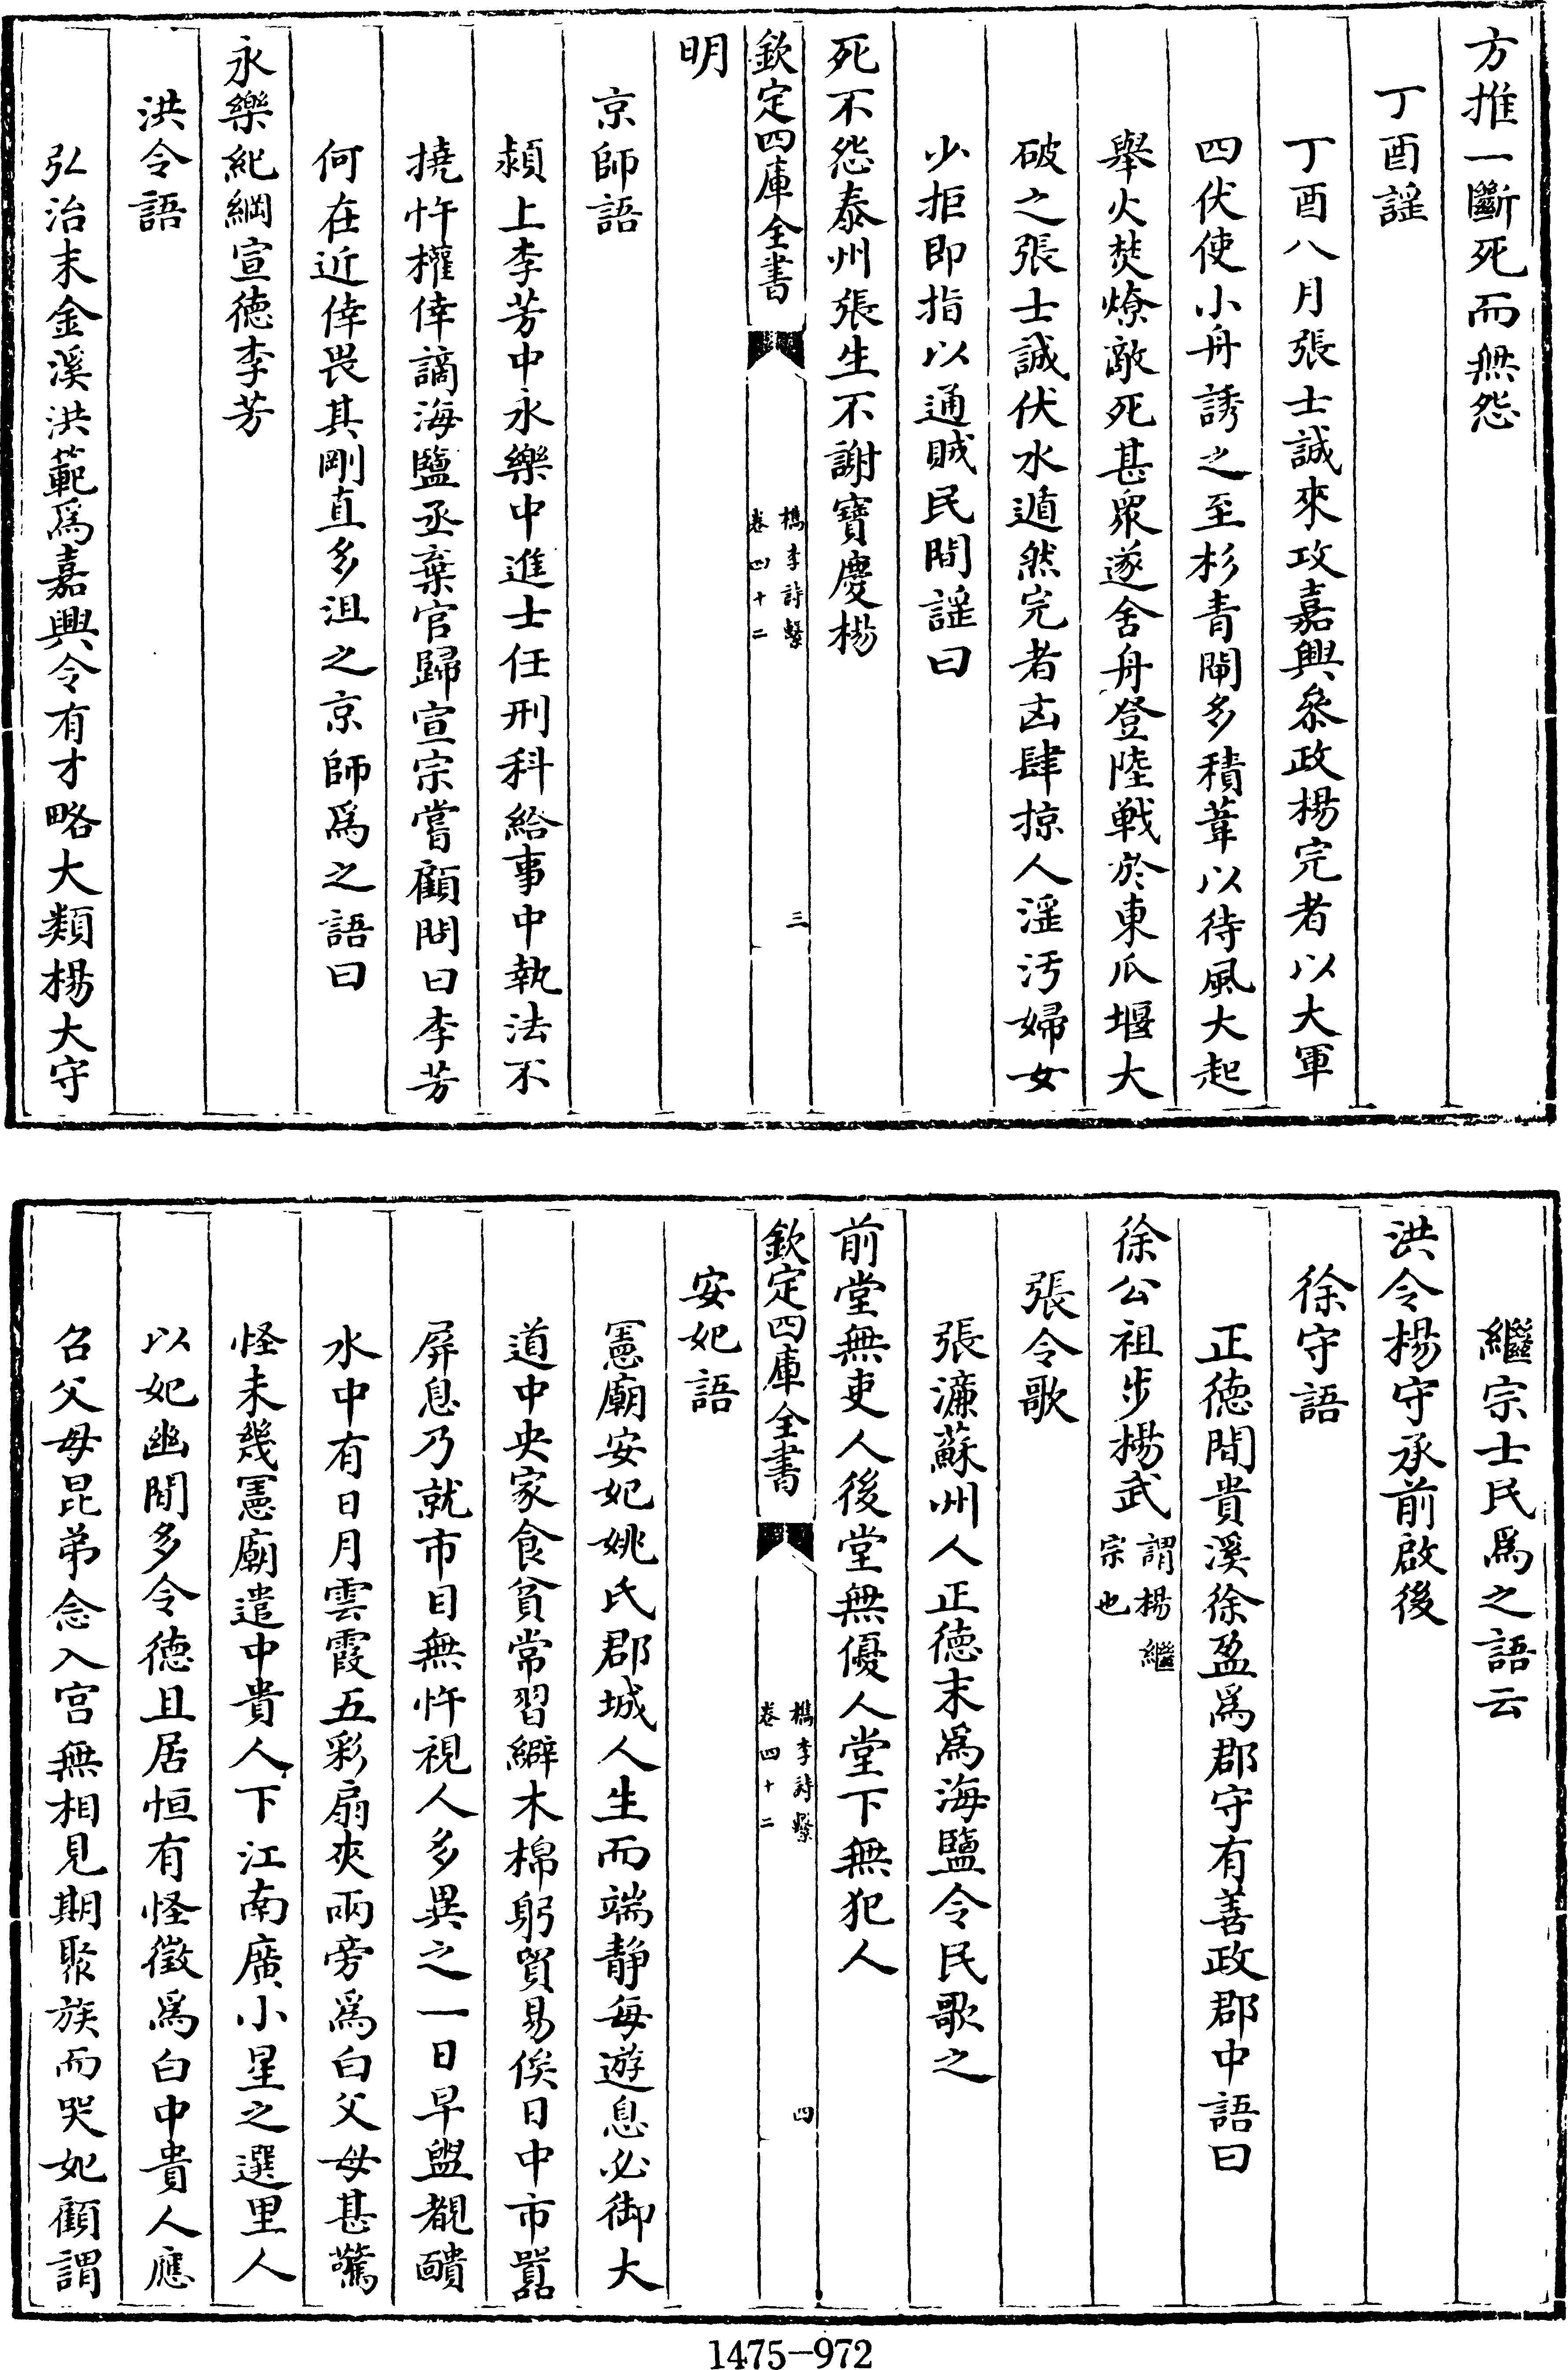 方推一斷死而無怨
丁酉謡
丁酉八月張士誠來攻嘉興叅政楊完者以大軍
四伏使小舟誘之至杉青閘多積葦以待風大起
舉火焚燎敵死甚衆遂舍舟登陸戰於東瓜堰大
破之張士誠伏水遁然完者凶肆掠人滛汚婦女
少拒即指以通賊民間謡曰
死不怨泰州張生不謝寶慶楊
欽定四庫全書
檇李詩繫
卷四十二
三
明
京師語
潁上李芳中永樂中進士任刑科給事中執法不
撓忤權倖謫海鹽丞棄官歸宣宗嘗顧問曰李芳
何在近倖畏其剛直多沮之京師爲之語曰
永樂紀綱宣德李芳
洪令語
弘治末金溪洪範爲嘉興令有才略大類楊大守
繼宗士民爲之語云
洪令楊守承前啟後
徐守語
正徳間貴溪徐盈爲郡守有善政郡中語曰
徐公祖步楊武
謂楊繼
宗也
張令歌
張濂蘇州人正徳末爲海鹽令民歌之
前堂無吏人後堂無優人堂下無犯人
欽定四庫全書
檇李詩繫
卷四十二
四
安妃語
憲廟安妃姚氏郡城人生而端静每遊息必御大
道中央家食貧常習繲木棉躬貿易俟日中市囂
屏息乃就市目無忤視人多異之一日早盥覩靧
水中有日月雲霞五彩扇夾兩旁爲白父母甚驚
怪未幾憲廟遣中貴人下江南廣小星之選里人
以妃幽閒多令德且居恒有怪徵爲白中貴人應
召父母昆弟念入宫無相見期聚族而哭妃顧謂
1475-972